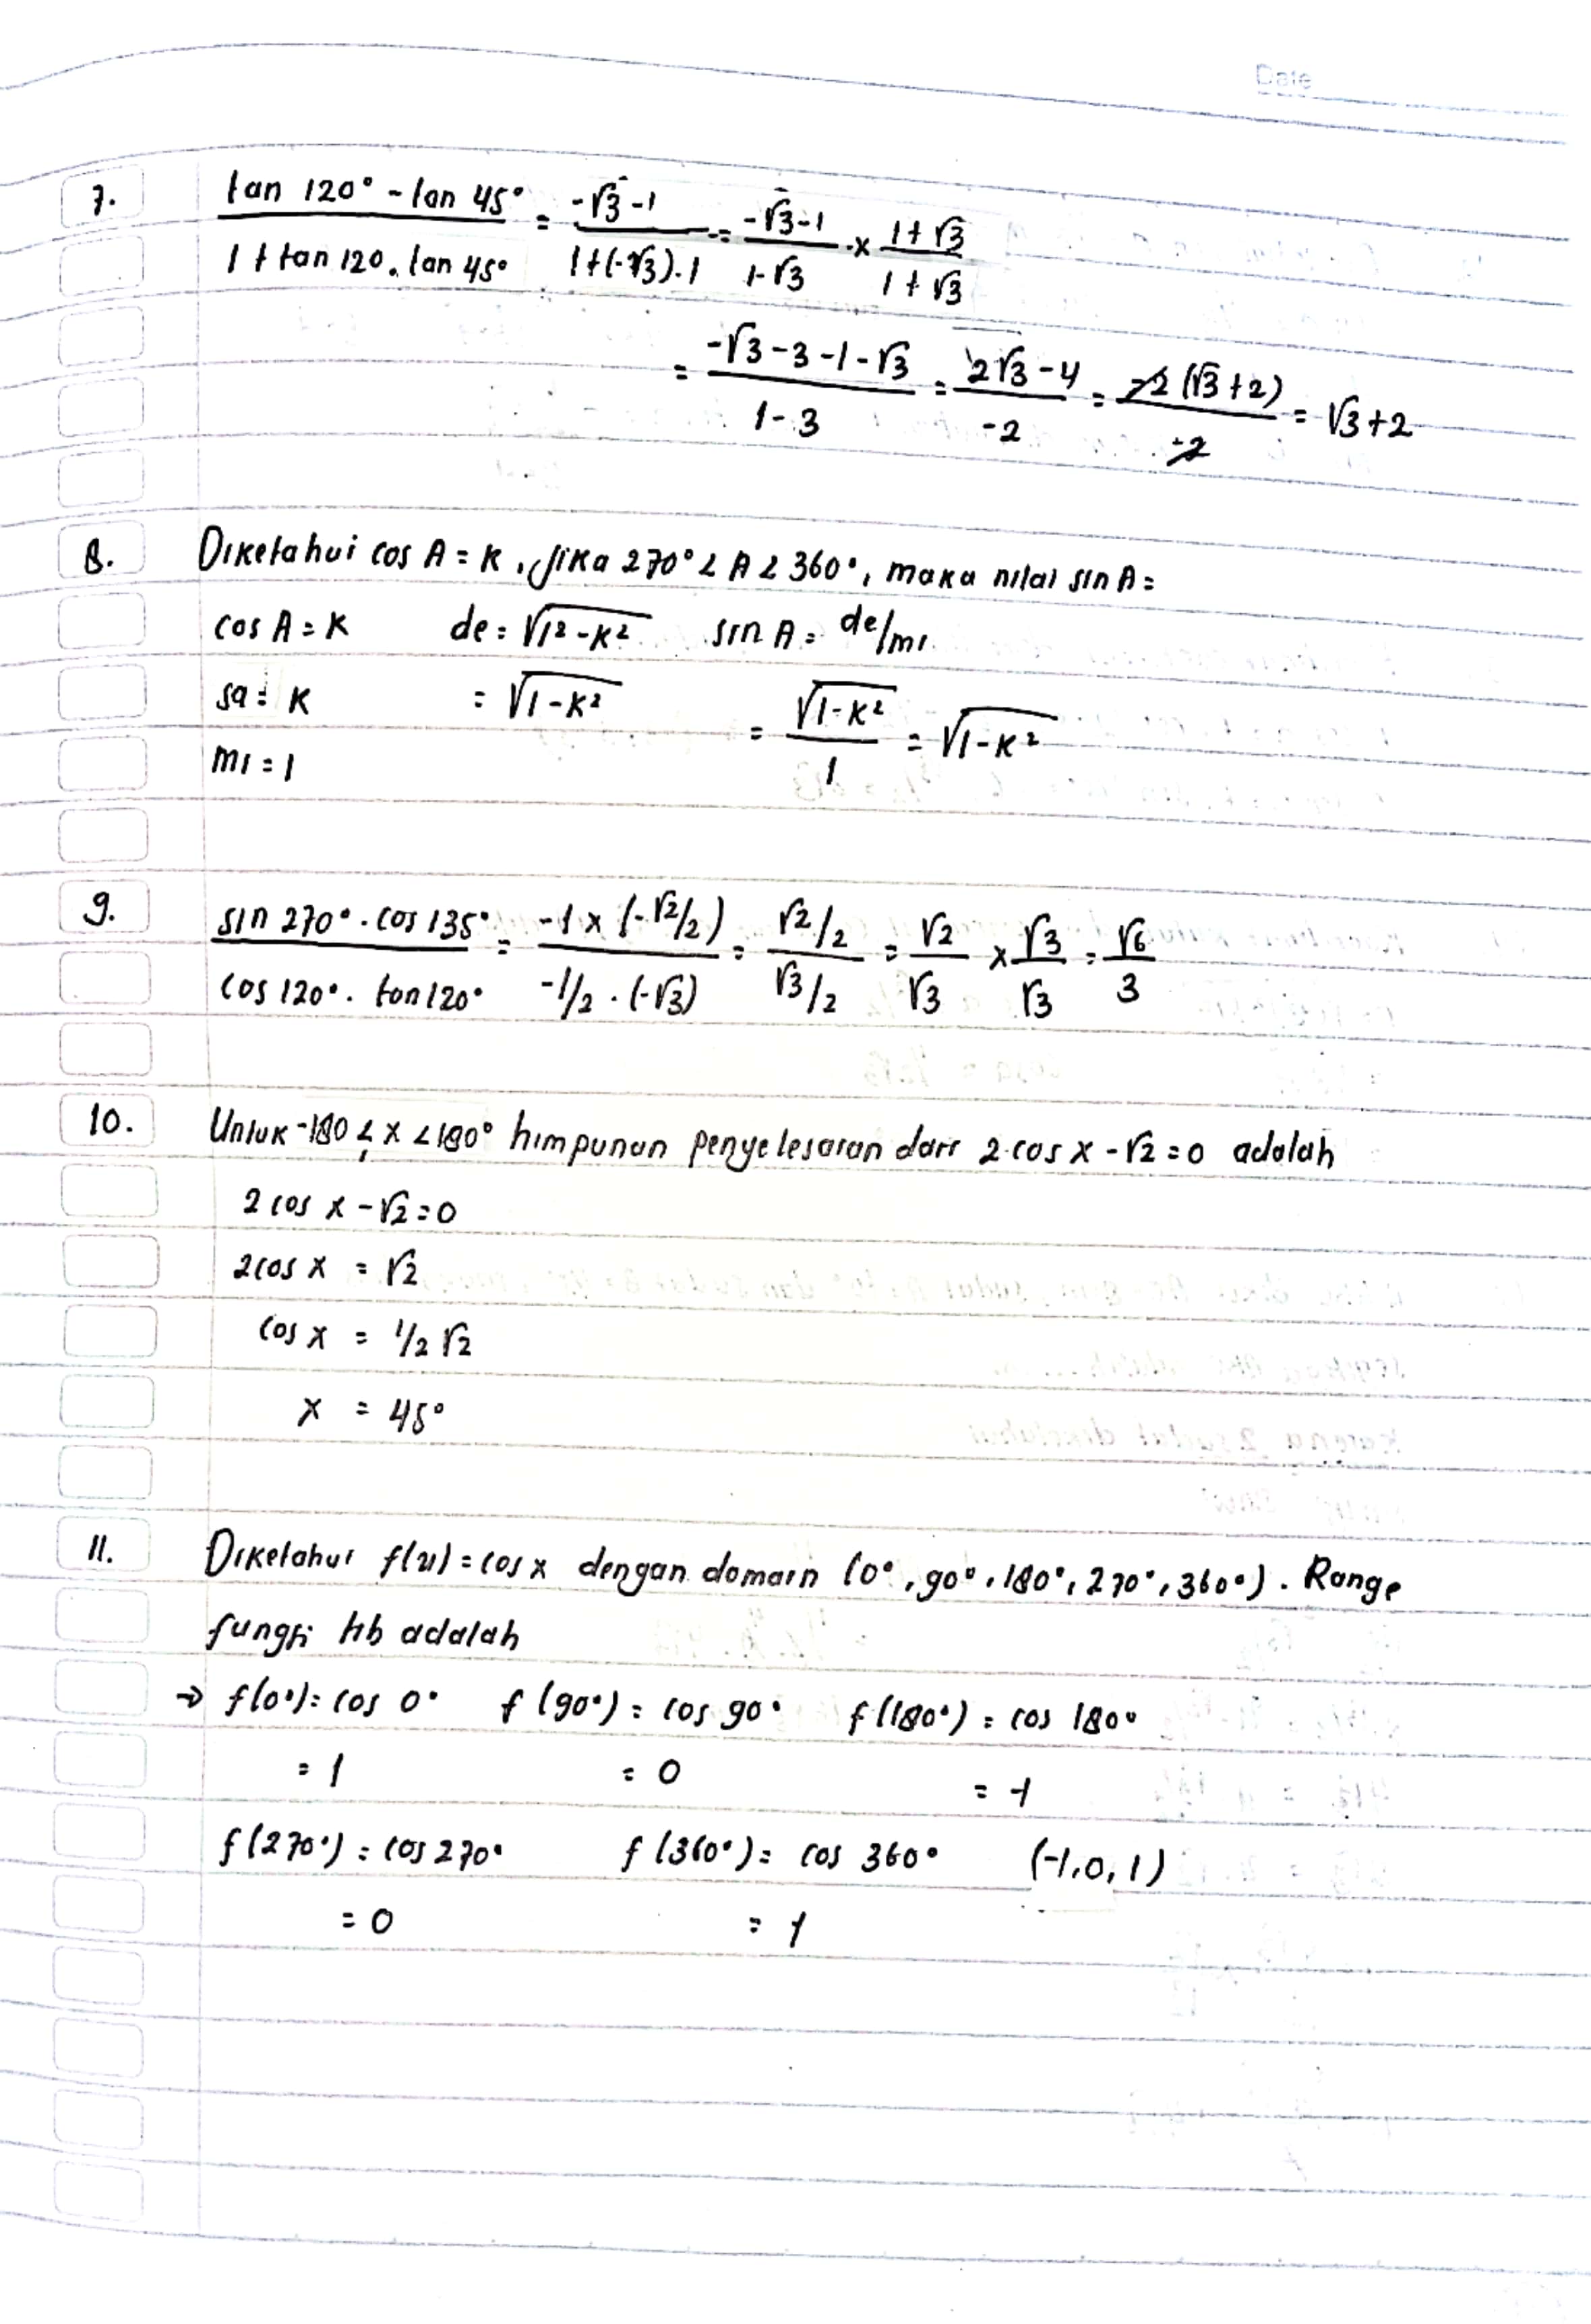 Date
7. tan 120° - tan 45° / 1 + tan 120 . tan 45° = -√3 - 1 / 1+(-√3).1 = -√3-1 / 1-√3 x 1+√3 / 1+√3
= -√3-3-1-√3 / 1-3 = 2√3-4 / -2 = -2(√3+2) / -2 = √3+2
8. Diketahui cos A = K . Jika 270° < A < 360°, maka nilai sin A =
cos A = K de = √1²-K² sin A = de/mi
sa = K = √1-K² = √1-K² / 1 = √1-K²
mi = 1
9. sin 270° . cos 135° / cos 120° . tan 120° = -1 x (-√2/2) / -1/2 . (-√3) = √2/2 / √3/2 = √2 / √3 x √3 / √3 = √6 / 3
10. Untuk -180 ≤ x < 180° himpunan penyelesaian dari 2 cos x - √2 = 0 adalah
2 cos x - √2 = 0
2 cos x = √2
cos x = 1/2 √2
x = 45°
11. Diketahui f(x) = cos x dengan domain (0°, 90°, 180°, 270°, 360°) . Range
fungsi tsb adalah
→ f(0°) = cos 0° f(90°) = cos 90° f(180°) = cos 180°
= 1 = 0 = -1
f(270°) = cos 270° f(360°) = cos 360° (-1,0,1)
= 0 = 1